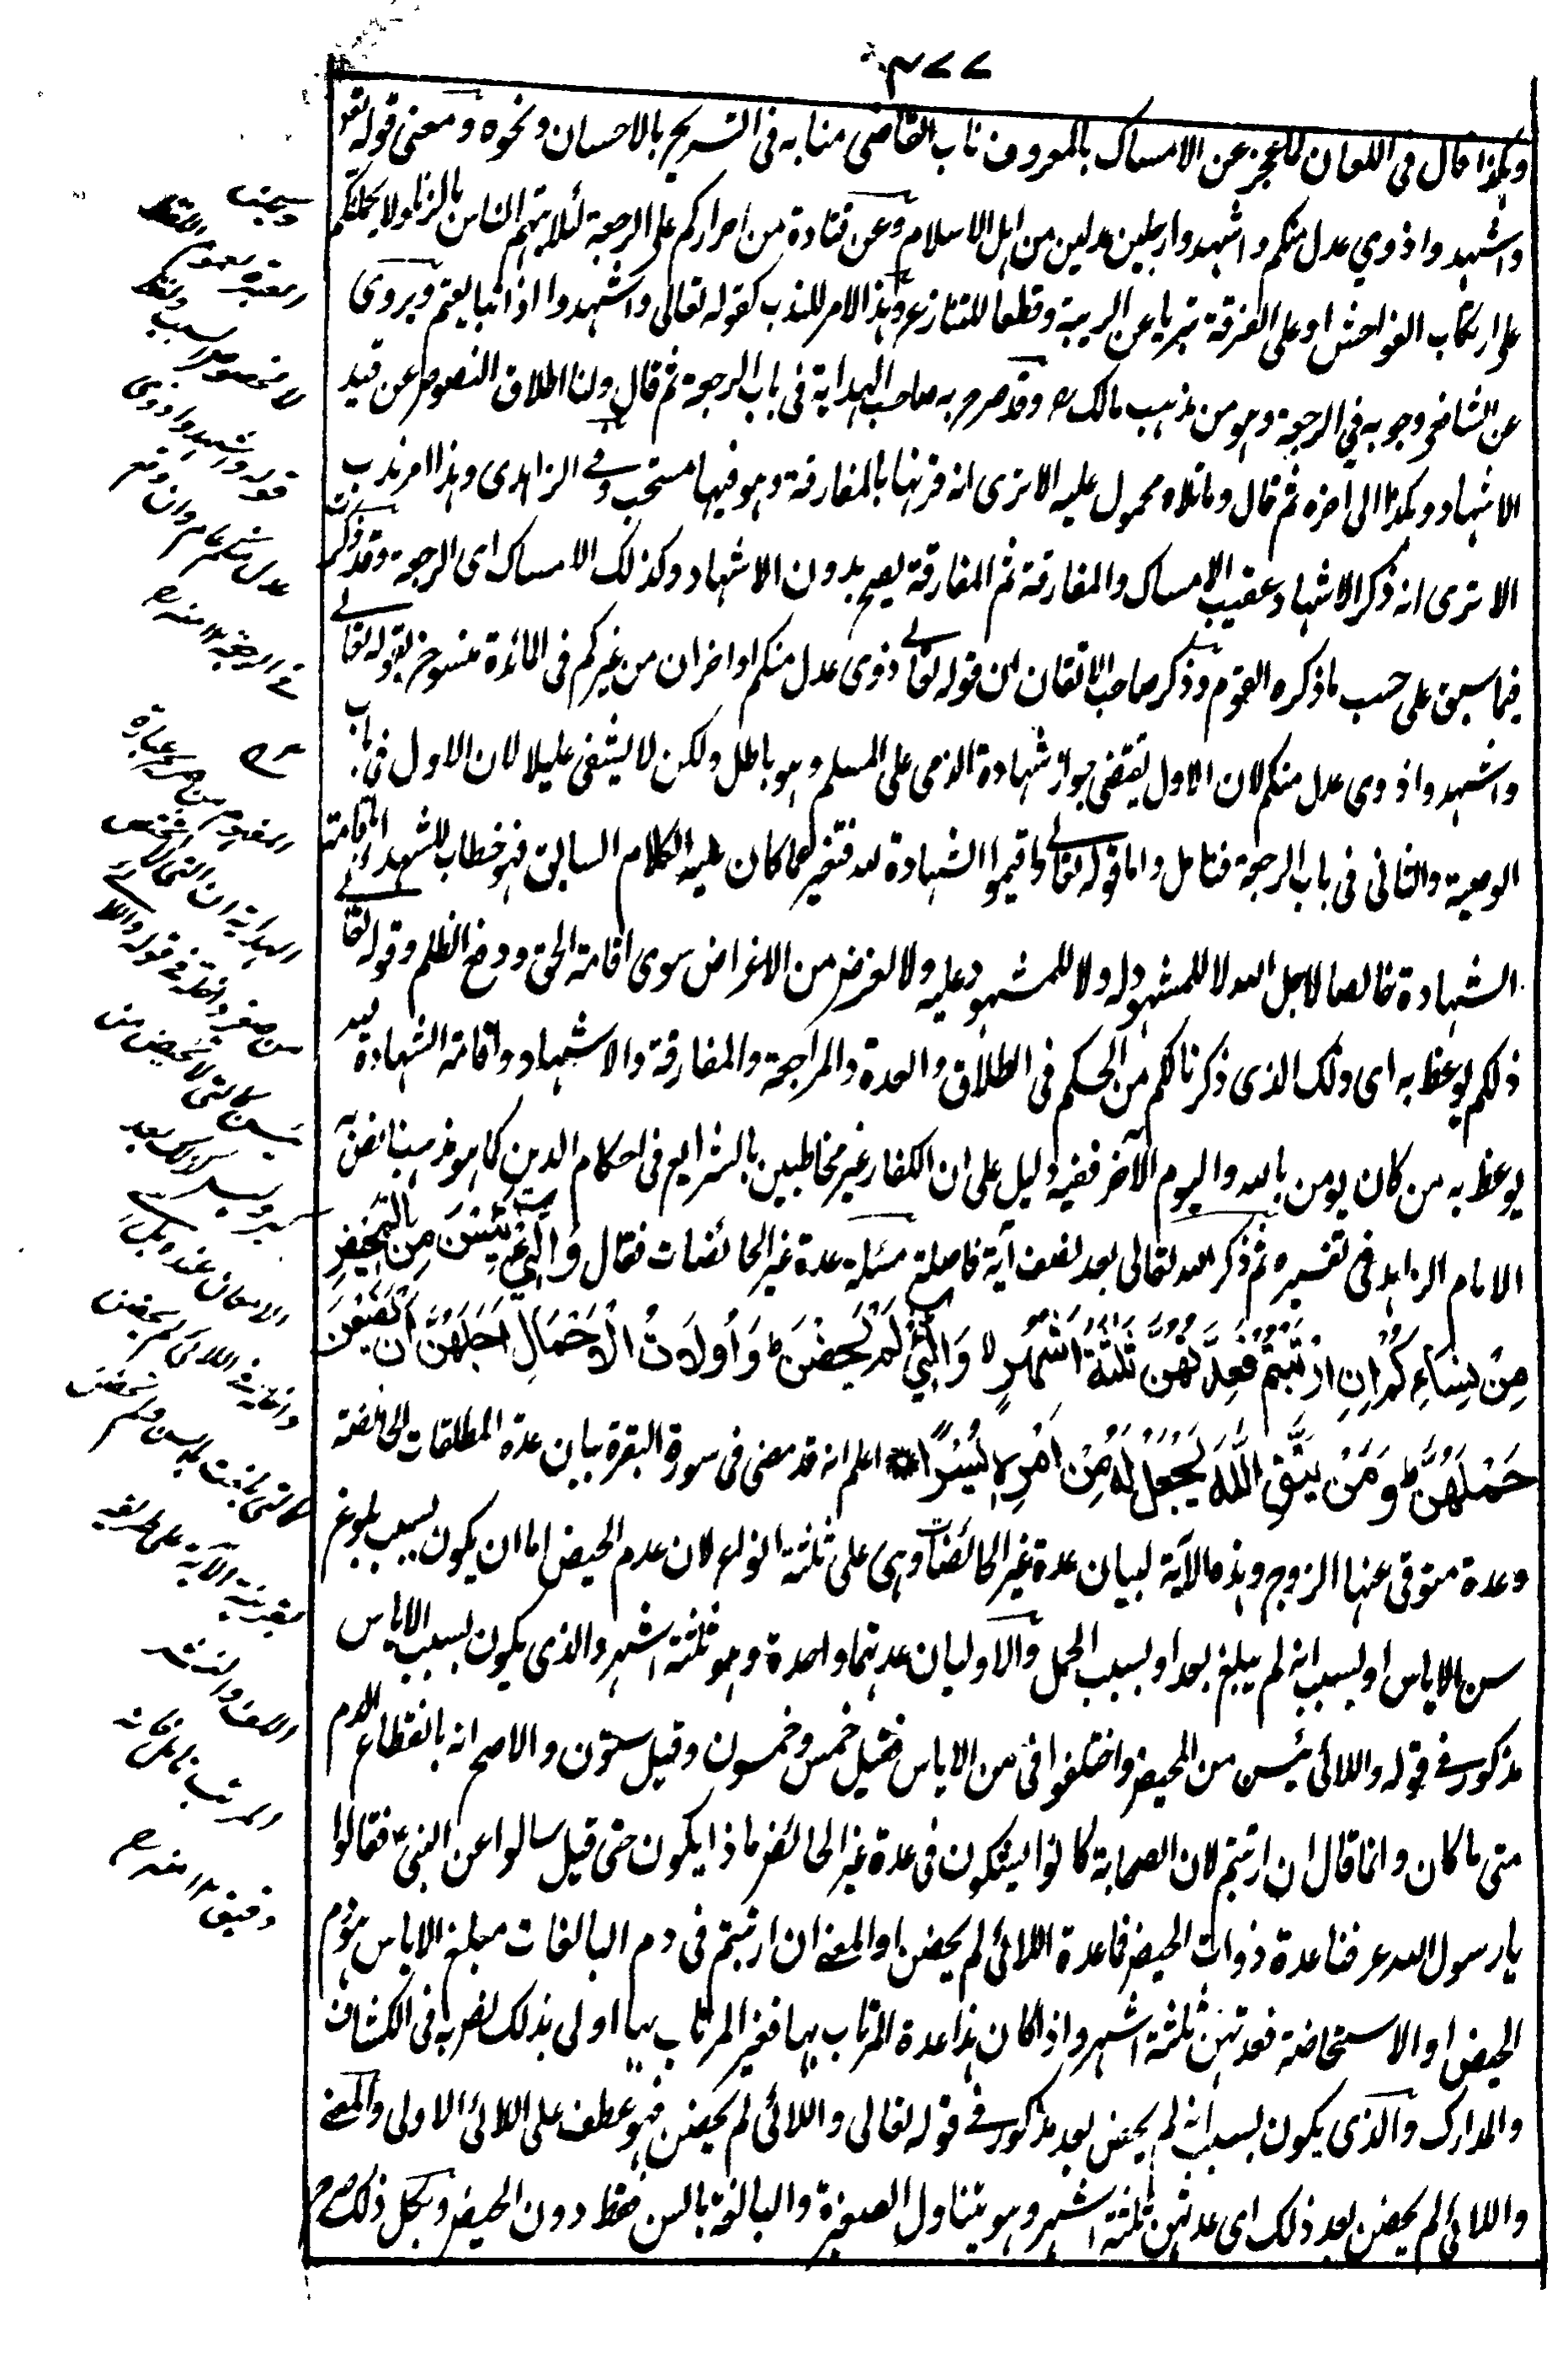 ٤٧٧
وهكذا قال فى اللعان لما عجز عن الامساك بالمعروف ناب القاضى منابه فى التسريح بالاحسان ونحوه ومعنى قوله تعو
واشهدوا ذوي عدل منكم واشهدوا رجلين عدلين من اهل الاسلام وعن قتادة من احراركم على الرجعة لئلا يتهم الناس بالزنا ولا يحملنكم
على ارتكاب الفواحش او على الفرقة تبريا عن الريبة وقطعا للتنازع وهذا الامر للندب كقوله تعالى واشهدوا اذا تبايعتم ويروى
عن الشافعى وجوبه في الرجعة وهو من مذهب مالك رح وقد صرح به صاحب الهداية فى باب الرجعة ثم قال ولنا اطلاق النصوص عن قيد
الاشهاد وهكذا الى اخره ثم قال وما تلاه محمول عليه الا ترى انه قرنها بالمفارقة وهو فيها مستحب وفى الزاهدى وهذا امر ندب
الا ترى انه ذكر الاشهاد عقيب الامساك والمفارقة ثم المفارقة يصح بدون الاشهاد وكذلك الامساك اى الرجعة وقد ذكرت
فيما سبق على حسب ما ذكره القوم وذكر صاحب الاتقان ان قوله تعالى ذوى عدل منكم او اخران من غيركم فى المائدة منسوخ بقوله تعالى
واشهدوا ذوي عدل منكم لان الاول يقتضى جواز شهادة الذمى على المسلم وهو باطل ولكن لا يشفى عليلا لان الاول فى باب
الوصية والثانى فى باب الرجعة فتامل واما قوله تعالى واقيموا الشهادة لله فتغير عما كان عليه الكلام السابق فهو خطاب للشهداء باقامة
الشهادة خالصا لاجل الله لا للمشهود له ولا للمشهود عليه ولا لغرض من الاغراض سوى اقامة الحق ودفع الظلم وقوله تعالى
ذلكم يوعظ به اى ذلك الذى ذكرنا لكم من الحكم فى الطلاق والعدة والمراجعة والمفارقة والاشهاد واقامة الشهادة لله
يوعظ به من كان يومن بالله واليوم الآخر ففيه دليل على ان الكفار غير مخاطبين بالشرايع فى احكام الدين كما هو مذهبنا نص به
الامام الزاهد فى تفسيره ثم ذكر الله تعالى بعد نصف آية فاصلة مسئلة عدة غير الحائضات فقال وَالّٰٓئِىْ يَئِسْنَ مِنَ الْمَحِيْضِ
مِنْ نِسَآءِكُمْ اِنِ ارْتَبْتُمْ فَعِدَّتُهُنَّ ثَلٰثَةُ اَشْهُرٍ لا وَالّٰٓئِىْ لَمْ يَحِضْنَ ط وَاُولَاتُ الْاَحْمَالِ اَجَلُهُنَّ اَنْ يَّضَعْنَ
حَمْلَهُنَّ ط وَمَنْ يَّتَّقِ اللّٰهَ يَجْعَلْ لَّهٗ مِنْ اَمْرِهٖ يُسْرًا اعلم انه قد مضى فى سورة البقرة بيان عدة المطلقات الحائضة
وعدة متوفى عنها الزوج وهذه الآية لبيان عدة غير الحائضات وهى على ثلثة انواع لان عدم الحيض اما ان يكون بسبب بلوغ
سن الاياس او بسبب انه لم يبلغ بعد او بسبب الحمل والاوليان عدتهما واحدة وهو ثلثة اشهر والذى يكون بسبب الاياس
مذكور فى قوله واللائى يئسن من المحيض واختلفوا فى سن الاياس فقيل خمس وخمسون وقيل ستون والاصح انه بانقطاع الدم
متى ما كان وانما قال ان ارتبتم لان الصحابة كانوا يشكون فى عدة غير الحائض ماذا يكون حتى قيل سالوا عن النبى ع فقالوا
يا رسول الله عرفنا عدة ذوات الحيض فما عدة اللائى لم يحضن او المعنى ان ارتبتم فى دم البالغات مبلغ الاياس اهو دم
الحيض او الاستحاضة فعدتهن ثلثة اشهر واذا كان هذا عدة المرتاب بها فغير المرتاب بها اولى بذلك نص به فى الكشاف
والمدارك والذى يكون بسبب انه لم يحض بعد مذكور فى قوله تعالى واللائى لم يحضن فهو عطف على اللائى الاولى والمعنى
واللائى لم يحضن بعد ذلك اى عدتهن ثلثة اشهر وهو يتناول الصغيرة والبالغة بالسن فقط دون الحيض وبكل ذلك صرح
المعتبر عموم اللفظ
لا خصوص السبب ولفظ
قوله واشهدوا ذوى
عدل منكم عام وان وقع
فى الرجعة ١٢ منه رح
المفهوم من عبارة
الهداية ان التى لا تحيض
من صغر داخلة فى قوله واللا